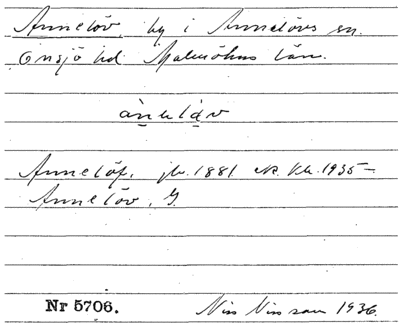 Annelöv, by i Annelövs sn.
Onsjö hd. Malmöhus län.
Annelöf, jb. 1881 1935-
Annelöv, G.
Nr 5706. Nils Nilsson 1936.